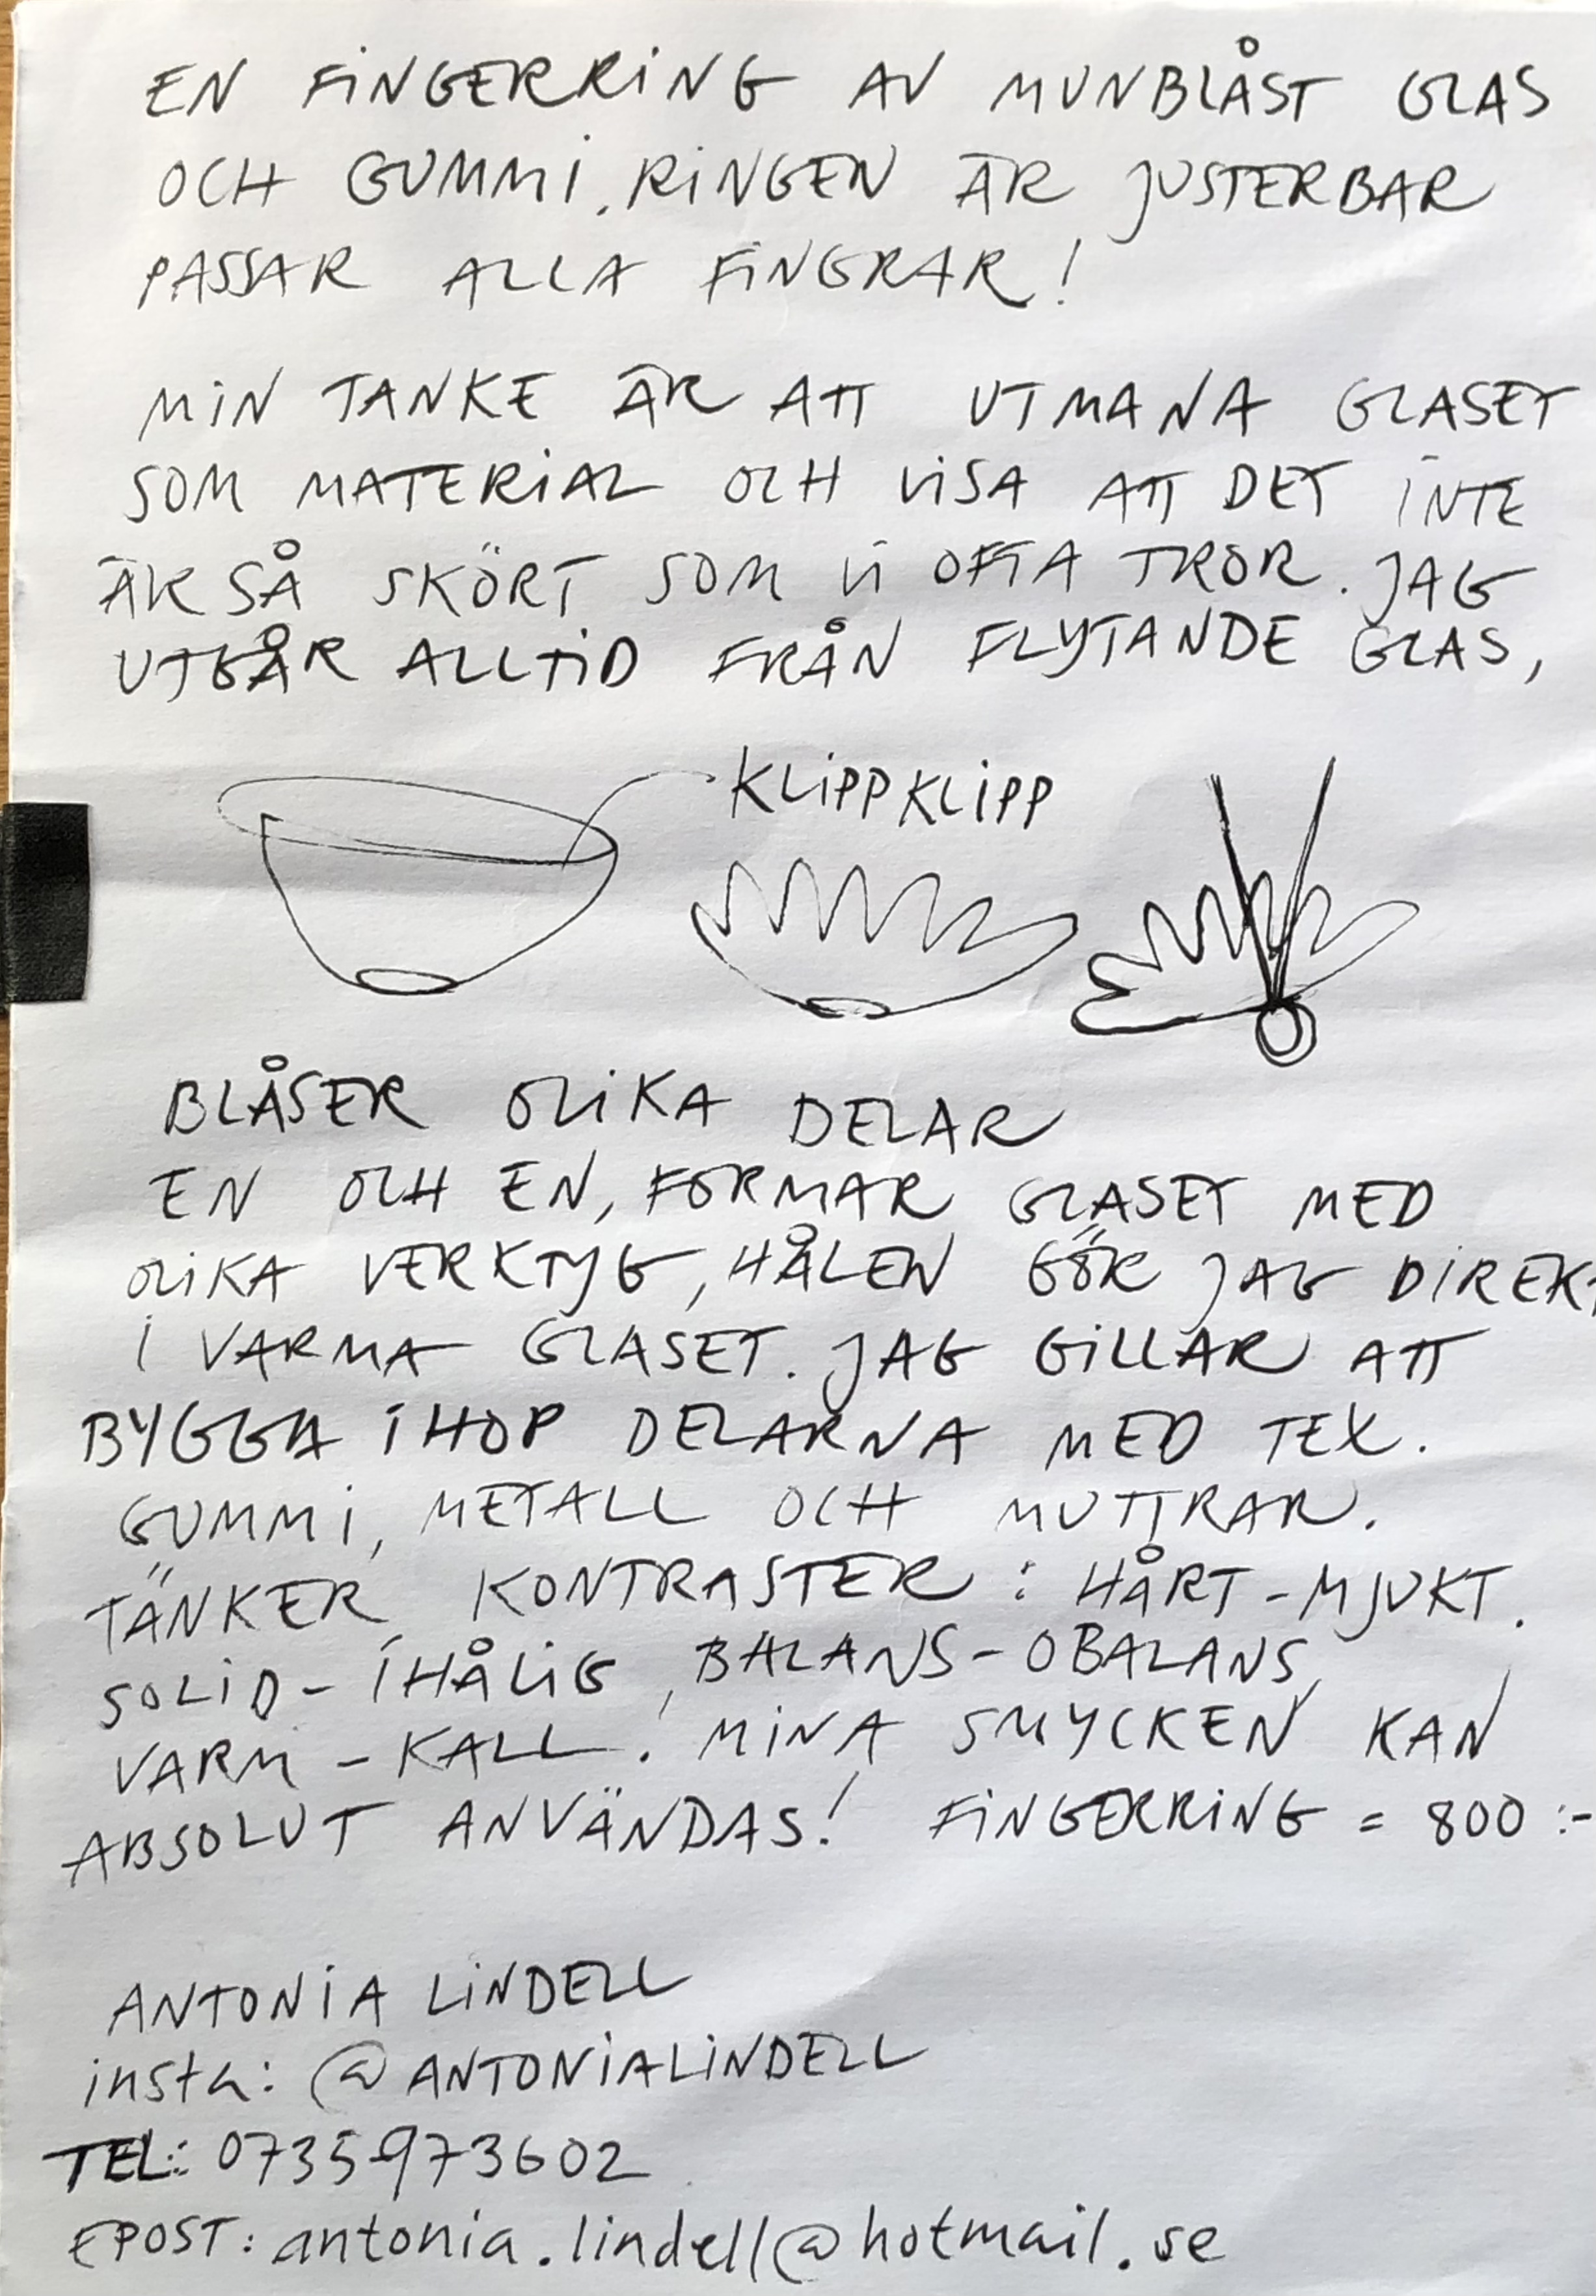 EN FINGERRING AV MUNBLÅST GLAS
OCH GUMMI. RINGEN ÄR JUSTERBAR
PASSAR ALLA FINGRAR!
MIN TANKE ÄR ATT UTMANA GLASET
SOM MATERIAL OCH VISA ATT DET INTE
ÄR SÅ SKÖRT SOM VI OFTA TROR. JAG
UTGÅR ALLTID FRÅN FLYTANDE GLAS,
KLIPPKLIPP
BLÅSER OLIKA DELAR
EN OCH EN, FORMAR GLASET MED
OLIKA VERKTYG, HÅLEN GÖR JAG DIREKT
I VARMA GLASET. JAG GILLAR ATT
BYGGA IHOP DELARNA MED TEX.
GUMMI, METALL OCH MUTTRAR.
TÄNKER KONTRASTER: HÅRT-MJUKT.
SOLID-IHÅLIG, BALANS-OBALANS,
VARM-KALL. MINA SMYCKEN KAN
ABSOLUT ANVÄNDAS! FINGERRING = 800:-
ANTONIA LINDELL
insta: @ANTONIALINDELL
TEL: 0735973602
EPOST: antonia.lindell@hotmail.se